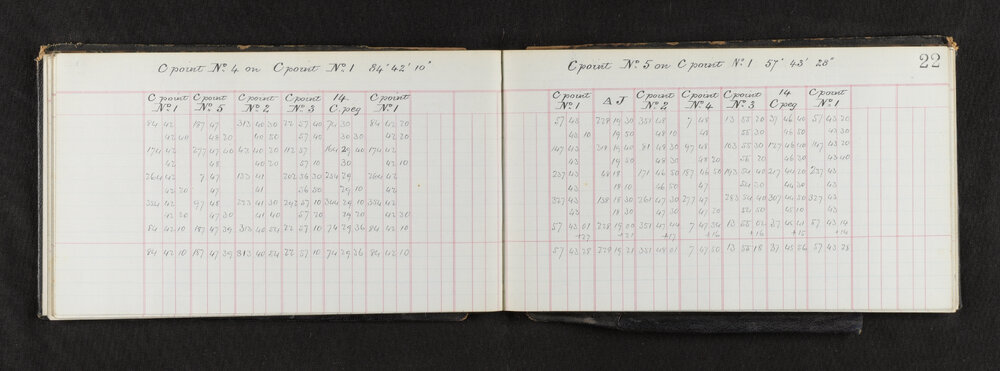 C point No. 4 on C point No. 1 84° 42' 10"
C point No 1 C point No 5 C point No 2 C point No 3 14 C. peg C point No 1
84 42 187 47 313 40 30 22 57 40 74 30 84 42 20
42 40 48 20 40 50 57 40 30 30 42 20
174 42 277 47 40 43 40 20 112 57 164 29 40 174 42
42 48 40 20 57 10 30 42 10
264 42 7 47 133 41 202 56 30 254 29 264 42
42 20 47 41 56 50 29 10 42
354 42 97 48 223 41 30 292 57 10 344 29 10 354 42
42 20 47 30 41 40 57 20 29 20 42 30
84 42 10 187 47 39 313 40 54 22 57 10 74 29 36 84 42 10
84 42 10 187 47 39 313 40 54 22 57 10 74 29 36 84 42 10
22
C point No. 5 on C point No. 1 57° 43' 28"
C point No 1 A J C point No 2 C point No 4 C point No 3 14 C peg C point No 1
57 43 228 19 30 351 48 7 48 13 55 20 37 46 40 57 43
43 10 19 50 48 10 48 55 30 46 50 43 30
147 43 318 19 40 81 48 30 97 48 103 55 30 127 46 40 147 43 20
43 19 50 48 30 48 20 55 20 46 20 43 40
237 43 48 18 171 46 50 187 46 50 193 54 40 217 44 20 237 43
43 18 10 46 50 47 54 30 44 30 43
327 43 138 18 30 261 47 30 277 47 283 54 40 307 45 50 327 43
43 18 30 47 30 47 20 54 50 45 10 43
57 43 01 228 19 00 351 47 44 7 47 34 13 55 02 37 45 41 57 43 14
+27 +21 +17 +16 +16 +15 +14
57 43 28 228 19 21 351 48 01 7 47 50 13 55 18 37 45 56 57 43 28